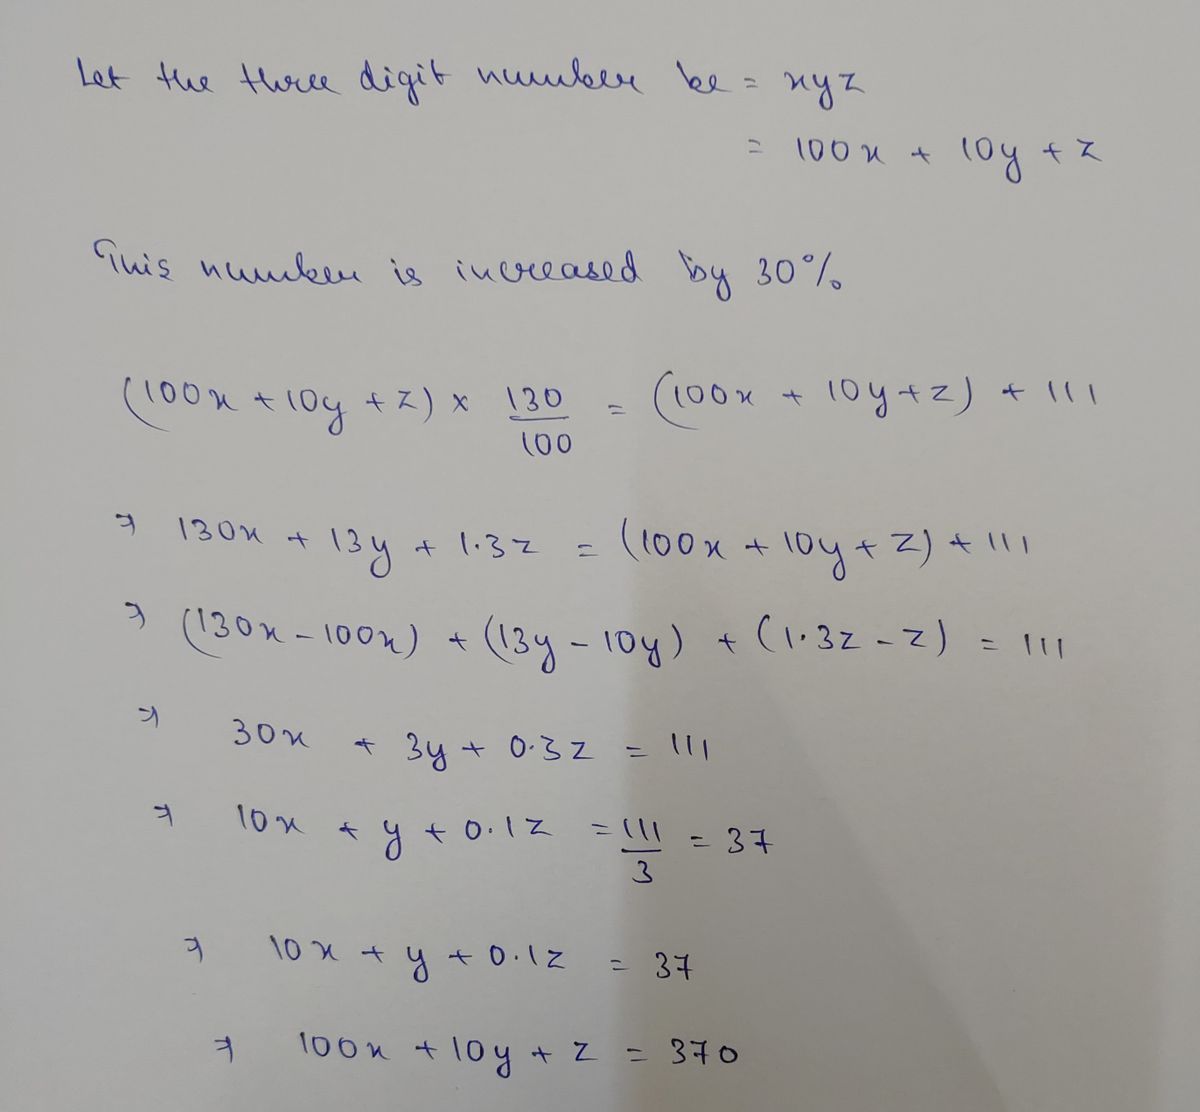 Let the three digit number be = xyz
= 100x + 10y + z
This number is increased by 30%
(100x + 10y + z) × 130/100 = (100x + 10y + z) + 111
⇒ 130x + 13y + 1.3z = (100x + 10y + z) + 111
⇒ (130x - 100x) + (13y - 10y) + (1.3z - z) = 111
⇒ 30x + 3y + 0.3z = 111
⇒ 10x + y + 0.1z = 111/3 = 37
⇒ 10x + y + 0.1z = 37
⇒ 100x + 10y + z = 370